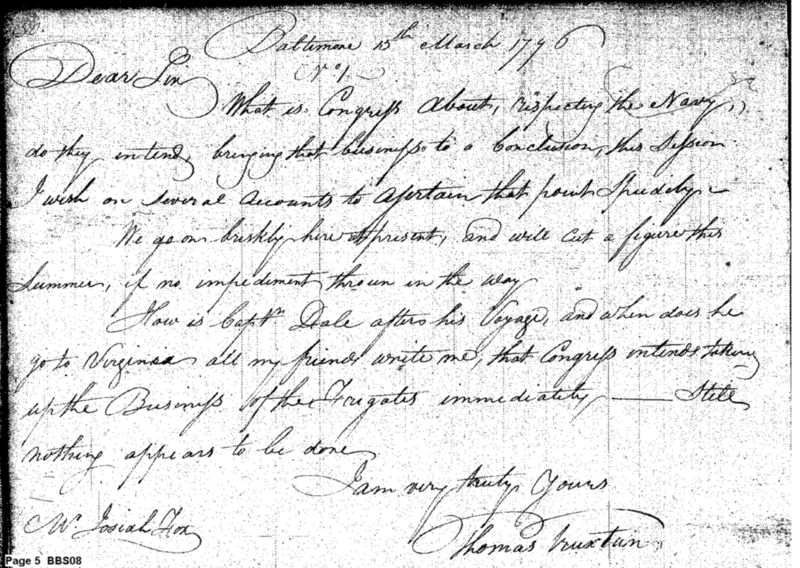 Baltimore 15th March 1796
(No 1.)
Dear Sir
What is Congress About, respecting the Navy,
do they intend, bringing that business to a Conclusion, this Session
I wish on Several Accounts to Asertain that point Speedely
We go on briskly here at present, and will Cut a figure this
Summer, if no impediment thrown in the way
How is Captn Dale after his Voyage, and when does he
go to Virginia all my friends write me, that Congress intends taking
up the Business of the Frigates immediately —— Still
nothing appears to be done
I am very truly Yours
Mr Josiah Fox
Thomas Truxtun
Page 5 BBS08